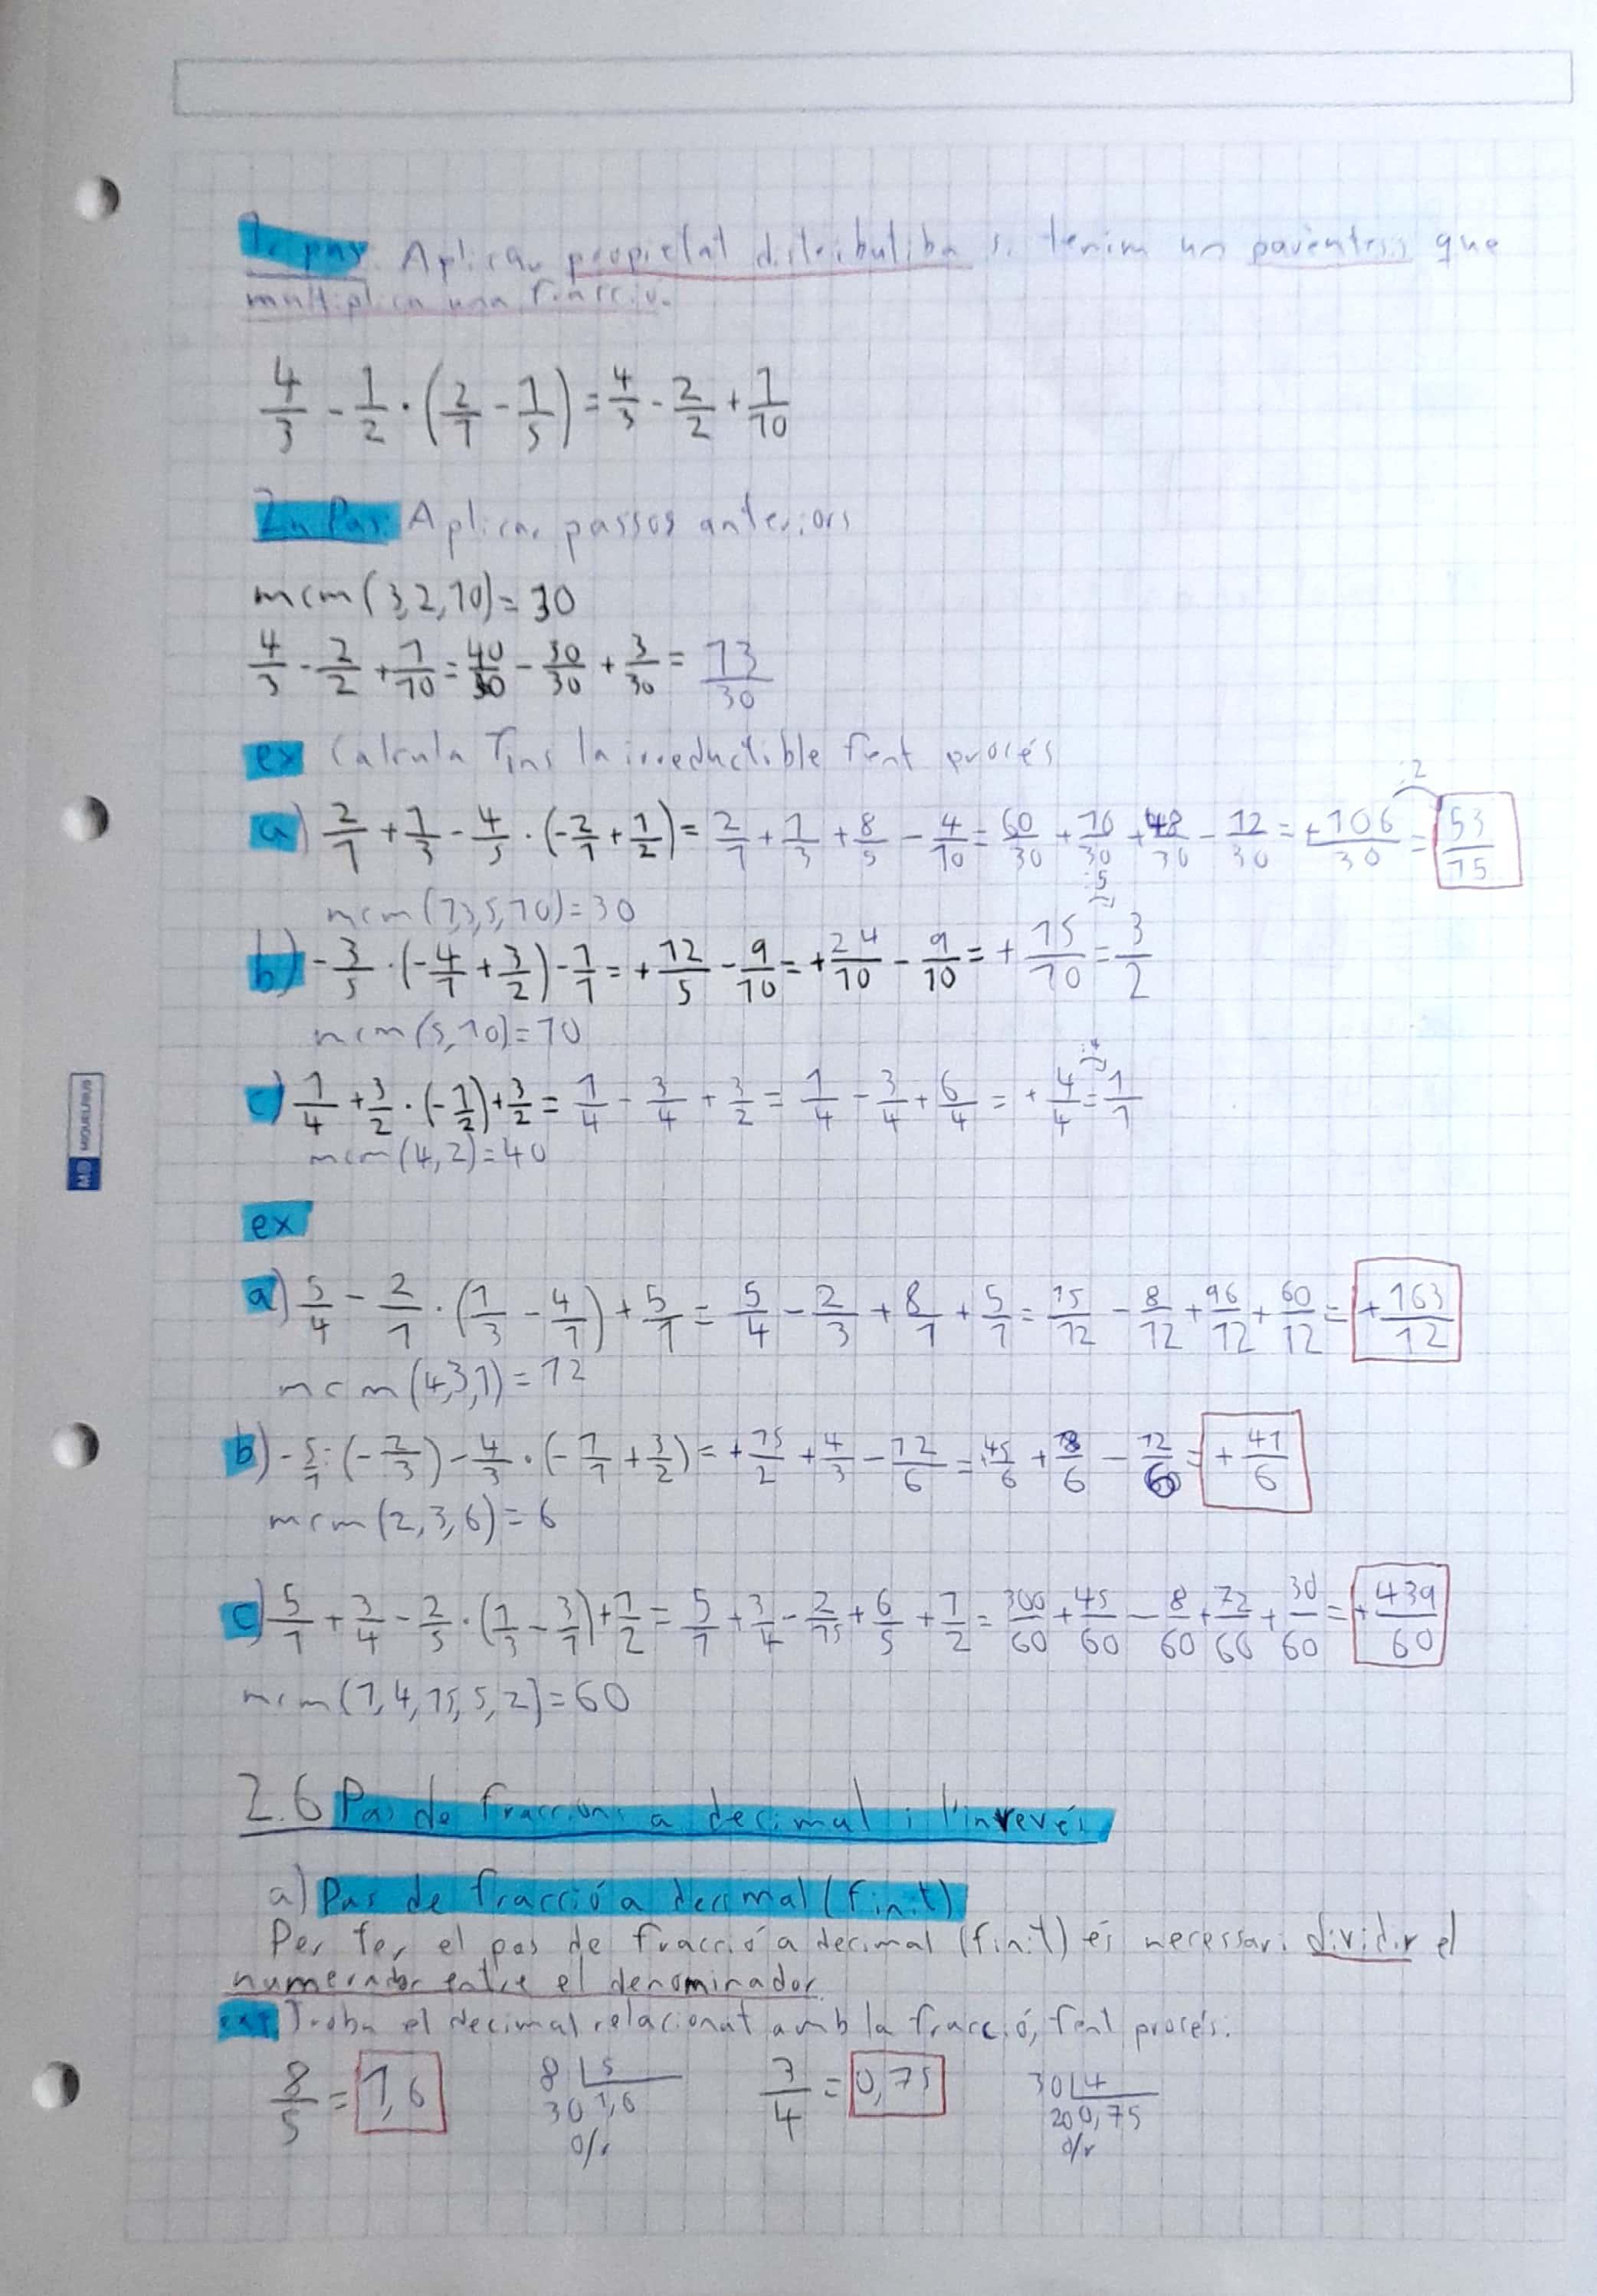 1r pas. Aplicar propietat distributiba si tenim un parèntesis que
multiplica una fracció.
4/3 - 1/2 · (2/1 - 1/5) = 4/3 - 2/2 + 1/10
2n Pas. Aplicar passos anteriors
mcm(3,2,10)=30
4/3 - 2/2 + 1/10 = 40/30 - 30/30 + 3/30 = 13/30
ex Calcula fins la irreductible fent procés
:2
a) 2/1 + 1/3 - 4/5 · (-2/1 + 1/2) = 2/1 + 1/3 + 8/5 - 4/10 = 60/30 + 10/30 + 48/30 - 12/30 = +106/30 = 53/15
mcm(1,3,5,10)=30
:5
b) -3/5 · (-4/1 + 3/2) - 1/1 = +12/5 - 9/10 = +24/10 - 9/10 = +15/10 = 3/2
mcm(5,10)=10
:4
c) 1/4 + 3/2 · (-1/2) + 3/2 = 1/4 - 3/4 + 3/2 = 1/4 - 3/4 + 6/4 = +4/4 = 1/1
mcm(4,2)=40
ex
a) 5/4 - 2/1 · (1/3 - 4/1) + 5/1 = 5/4 - 2/3 + 8/1 + 5/1 = 15/12 - 8/12 + 96/12 + 60/12 = +163/12
mcm(4,3,1)=12
b) -5/1 : (-2/3) - 4/3 · (-1/1 + 3/2) = +15/2 + 4/3 - 12/6 = +45/6 + 8/6 - 12/6 = +41/6
mcm(2,3,6)=6
c) 5/1 + 3/4 - 2/5 · (1/3 - 3/1) + 1/2 = 5/1 + 3/4 - 2/15 + 6/5 + 1/2 = 300/60 + 45/60 - 8/60 + 72/60 + 30/60 = +439/60
mcm(1,4,15,5,2)=60
2.6 Pas de fraccions a decimal i l'inrevés
a) Pas de fracció a decimal (finit)
Per fer el pas de fracció a decimal (finit) és necessari dividir el
numerador entre el denominador.
Troba el decimal relacionat amb la fracció, fent procés.
8/5 = 1,6 8 |5 3/4 = 0,75 30 |4
30 1,6 20 0,75
0/r 0/r
MD MIQUELRIUS